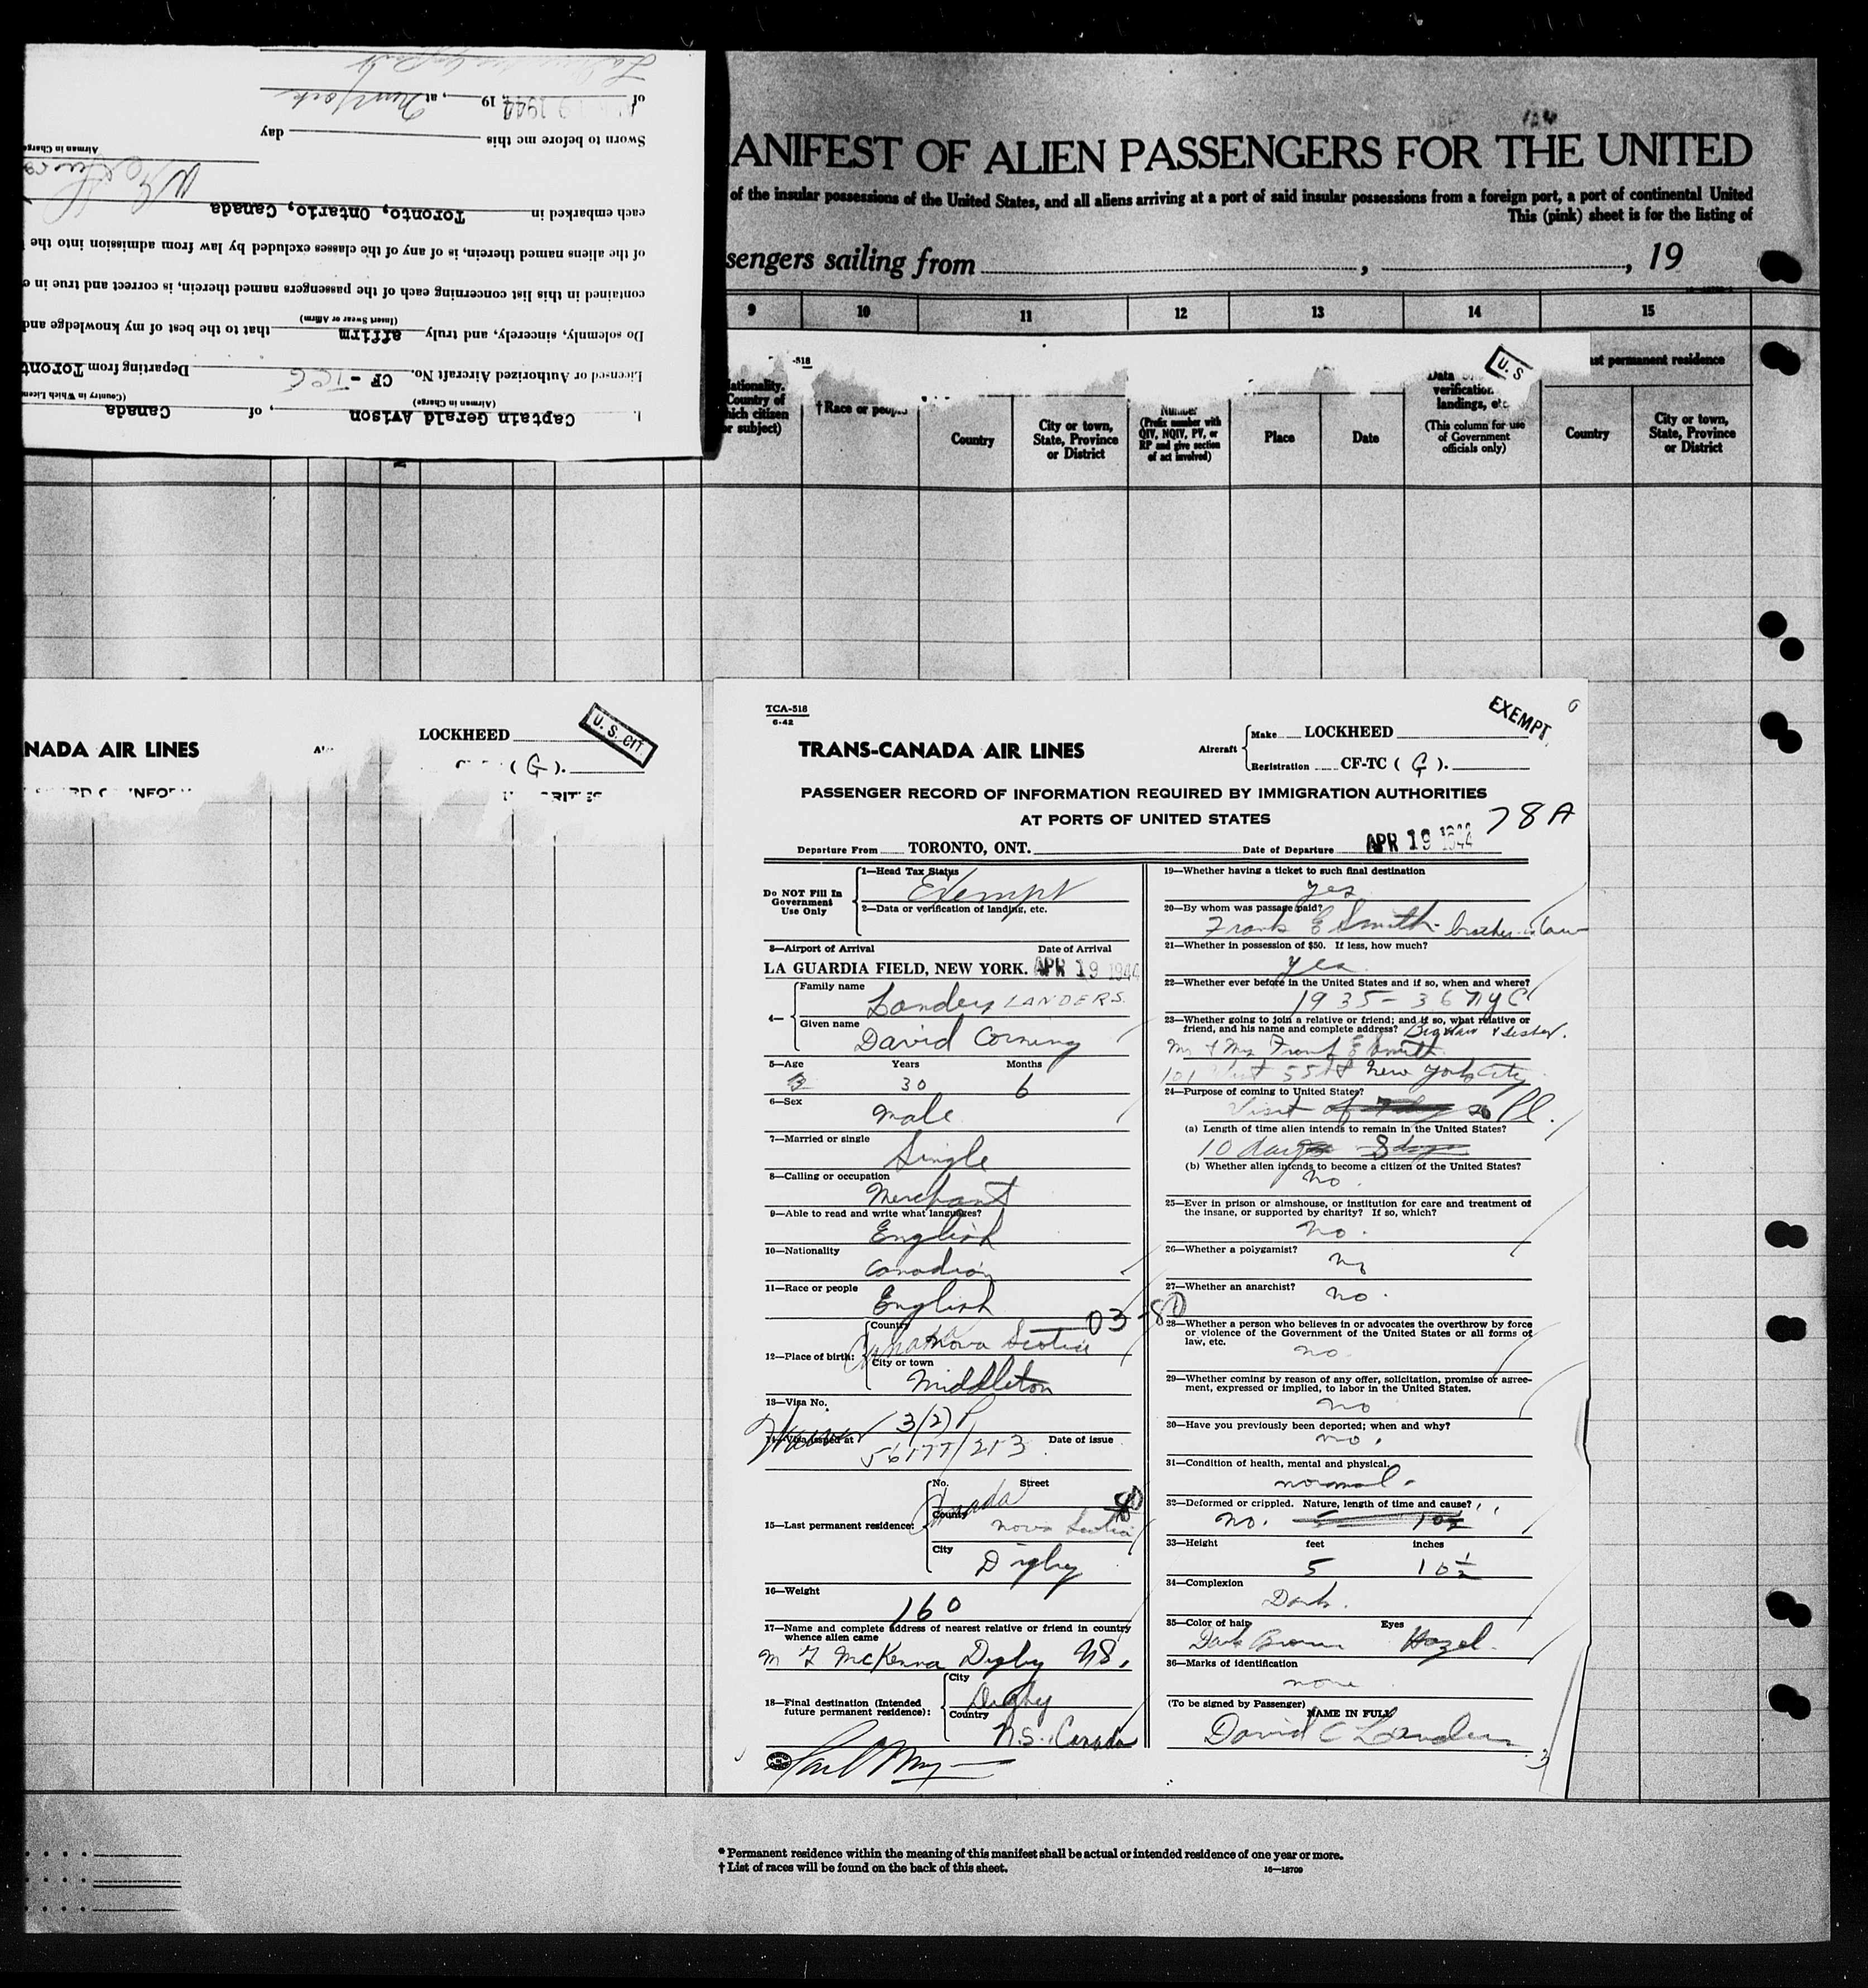 ANIFEST OF ALIEN PASSENGERS FOR THE UNITED
of the insular possessions of the United States, and all aliens arriving at a port of said insular possessions from a foreign port, a port of continental United
This (pink) sheet is for the listing of
sengers sailing from , , 19
9 10 11 12 13 14 15
-518 U. S
ationality. Country of hich citizen or subject)
† Race or people
Country
City or town, State, Province or District
Number (Prefix number with QIV, NQIV, PV, or RP and give section of act involved)
Place
Date
Data verification landings, etc (This column for use of Government officials only)
ast permanent residence
Country
City or town, State, Province or District
I, Captain Gerald Avison , of Canada
(Airman in Charge) (Country in Which Licen
Licensed or Authorized Aircraft No. CF - TCG Departing from Toront
Do solemnly, sincerely, and truly affirm that to the best of my knowledge and
(Insert Swear or Affirm)
contained in this list concerning each of the passengers named therein, is correct and true in e
of the aliens named therein, is of any of the classes excluded by law from admission into the
each embarked in Toronto, Ontario, Canada
Airman in Charge
Sworn to before me this day
of 19 1944, 19 , at New York
NADA AIR LINES
LOCKHEED
U. S. CIT.
( G ).
TCA-518
6-42
EXEMPT
TRANS-CANADA AIR LINES
Aircraft
Make LOCKHEED
Registration CF-TC ( G ).
PASSENGER RECORD OF INFORMATION REQUIRED BY IMMIGRATION AUTHORITIES
AT PORTS OF UNITED STATES
78 A
Departure From TORONTO, ONT. Date of Departure APR 19 1944
Do NOT Fill In Government Use Only
1—Head Tax Status
Exempt
2—Data or verification of landing, etc.
3—Airport of Arrival Date of Arrival
LA GUARDIA FIELD, NEW YORK. APR 19 1944
4— Family name
Landers LANDERS.
Given name
David Corning
5—Age Years Months
30 6
6—Sex
Male
7—Married or single
Single
8—Calling or occupation
Merchant
9—Able to read and write what languages?
English
10—Nationality
Canadian
11—Race or people
English
03-80
12—Place of birth: Country
Canada Nova Scotia
City or town
Middleton
13—Visa No.
3(2) P
14—Visa issued at Date of issue
56177/213
15—Last permanent residence: No. Street
Canada
County
Nova Scotia
City
Digby
16—Weight
160
17—Name and complete address of nearest relative or friend in country
whence alien came
M F McKenna Digby NS.
18—Final destination (Intended future permanent residence): City
Digby
Country
N.S. Canada
19—Whether having a ticket to such final destination
yes
20—By whom was passage paid?
Frank E Smith - brother in law
21—Whether in possession of $50. If less, how much?
yes
22—Whether ever before in the United States and if so, when and where?
1935-36 NYC
23—Whether going to join a relative or friend; and if so, what relative or
friend, and his name and complete address? Bro law & sister.
Mr & Mrs Frank E Smith
101 West 55 St New York City
24—Purpose of coming to United States?
Visit
(a) Length of time alien intends to remain in the United States?
10 days
(b) Whether alien intends to become a citizen of the United States?
No.
25—Ever in prison or almshouse, or institution for care and treatment of
the insane, or supported by charity? If so, which?
No.
26—Whether a polygamist?
No
27—Whether an anarchist?
No.
28—Whether a person who believes in or advocates the overthrow by force
or violence of the Government of the United States or all forms of
law, etc.
No
29—Whether coming by reason of any offer, solicitation, promise or agree-
ment, expressed or implied, to labor in the United States.
No
30—Have you previously been deported; when and why?
No.
31—Condition of health, mental and physical.
normal.
32—Deformed or crippled. Nature, length of time and cause?
No.
33—Height feet inches
5 10 1/2
34—Complexion
Dark.
35—Color of hair Eyes
Dark Brown Hazel.
36—Marks of identification
none
(To be signed by Passenger) NAME IN FULL
David C Landers
* Permanent residence within the meaning of this manifest shall be actual or intended residence of one year or more.
† List of races will be found on the back of this sheet. 16—18709